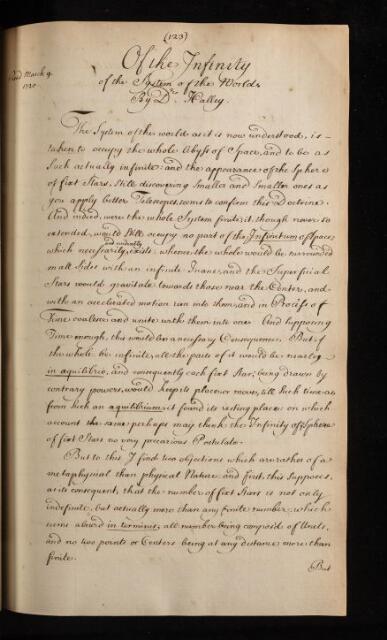 (123)
Of the Infinity
Read March 9.
1720
of the System of the World.
By Dr. Halley.
The System of the world as it is now understood, is
taken to occupy the whole Abyss of Space, and to be as
Such actually infinite: and the appearance of the Sphere
of fixt Stars, Still discovering Smaller and Smaller ones as
you apply better Telescopes, seems to confirm this Doctrine.
And indeed, were the whole System finite; it, though never so
extended, would Still occupy no part of the Infinitum of Space,
which necessarily and evidently exists; whence the whole would be surrounded
on all Sides with an infinite Inane, and the Superficial
Stars would gravitate towards those near the Center, and
with an accelerated motion run into them, and in Process of
Time coalesce and unite with them into one. And Supposing
Time enough, this would be a necessary Consequence. But if
the whole be infinite, all the parts of it would be nearly
in aequilibrio, and consequently each fixt Star, being drawn by
contrary powers, would keep its place or move, till Such time as
from Such an aequilibrium it found its resting place; on which
account the same perhaps may think the Infinity of Sphere
of fixt Stars no very precarious Postulate.
But to this I find two objections which are rather of a
metaphysical than physical Nature; and first, this supposes,
as its consequent, that the number of fixt Stars is not only
indefinite, but actually more than any finite number; which
seems absurd in terminis, all number being composed of Units,
and no two points or Centers being at any distance more than
finite.
But